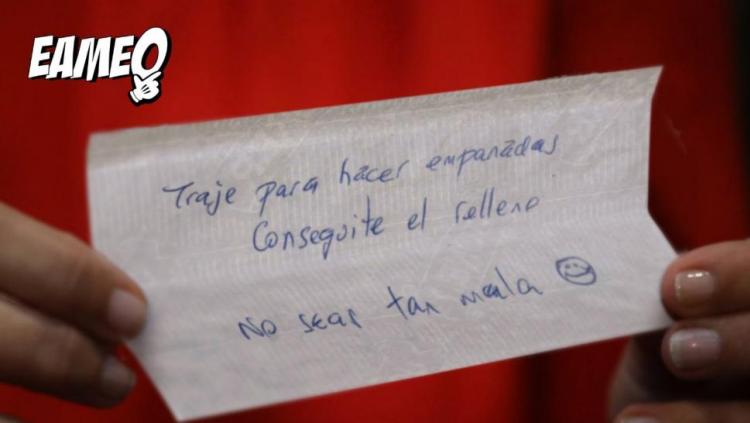 EAMEO
Traje para hacer empanadas
Conseguite el relleno
No seas tan mala